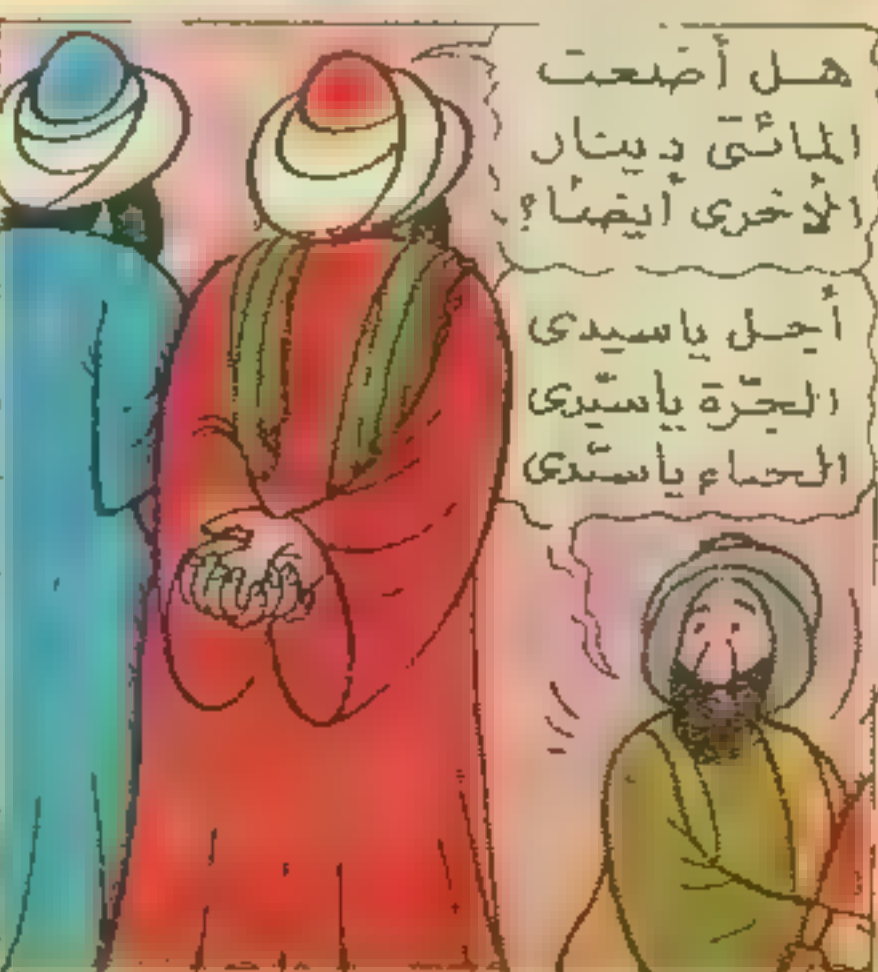 هل أضعت
المائتى دينار
الأخرى أيضا؟
أجل ياسيدى
الجرّة ياسيّدى
الحساء ياسيّدى